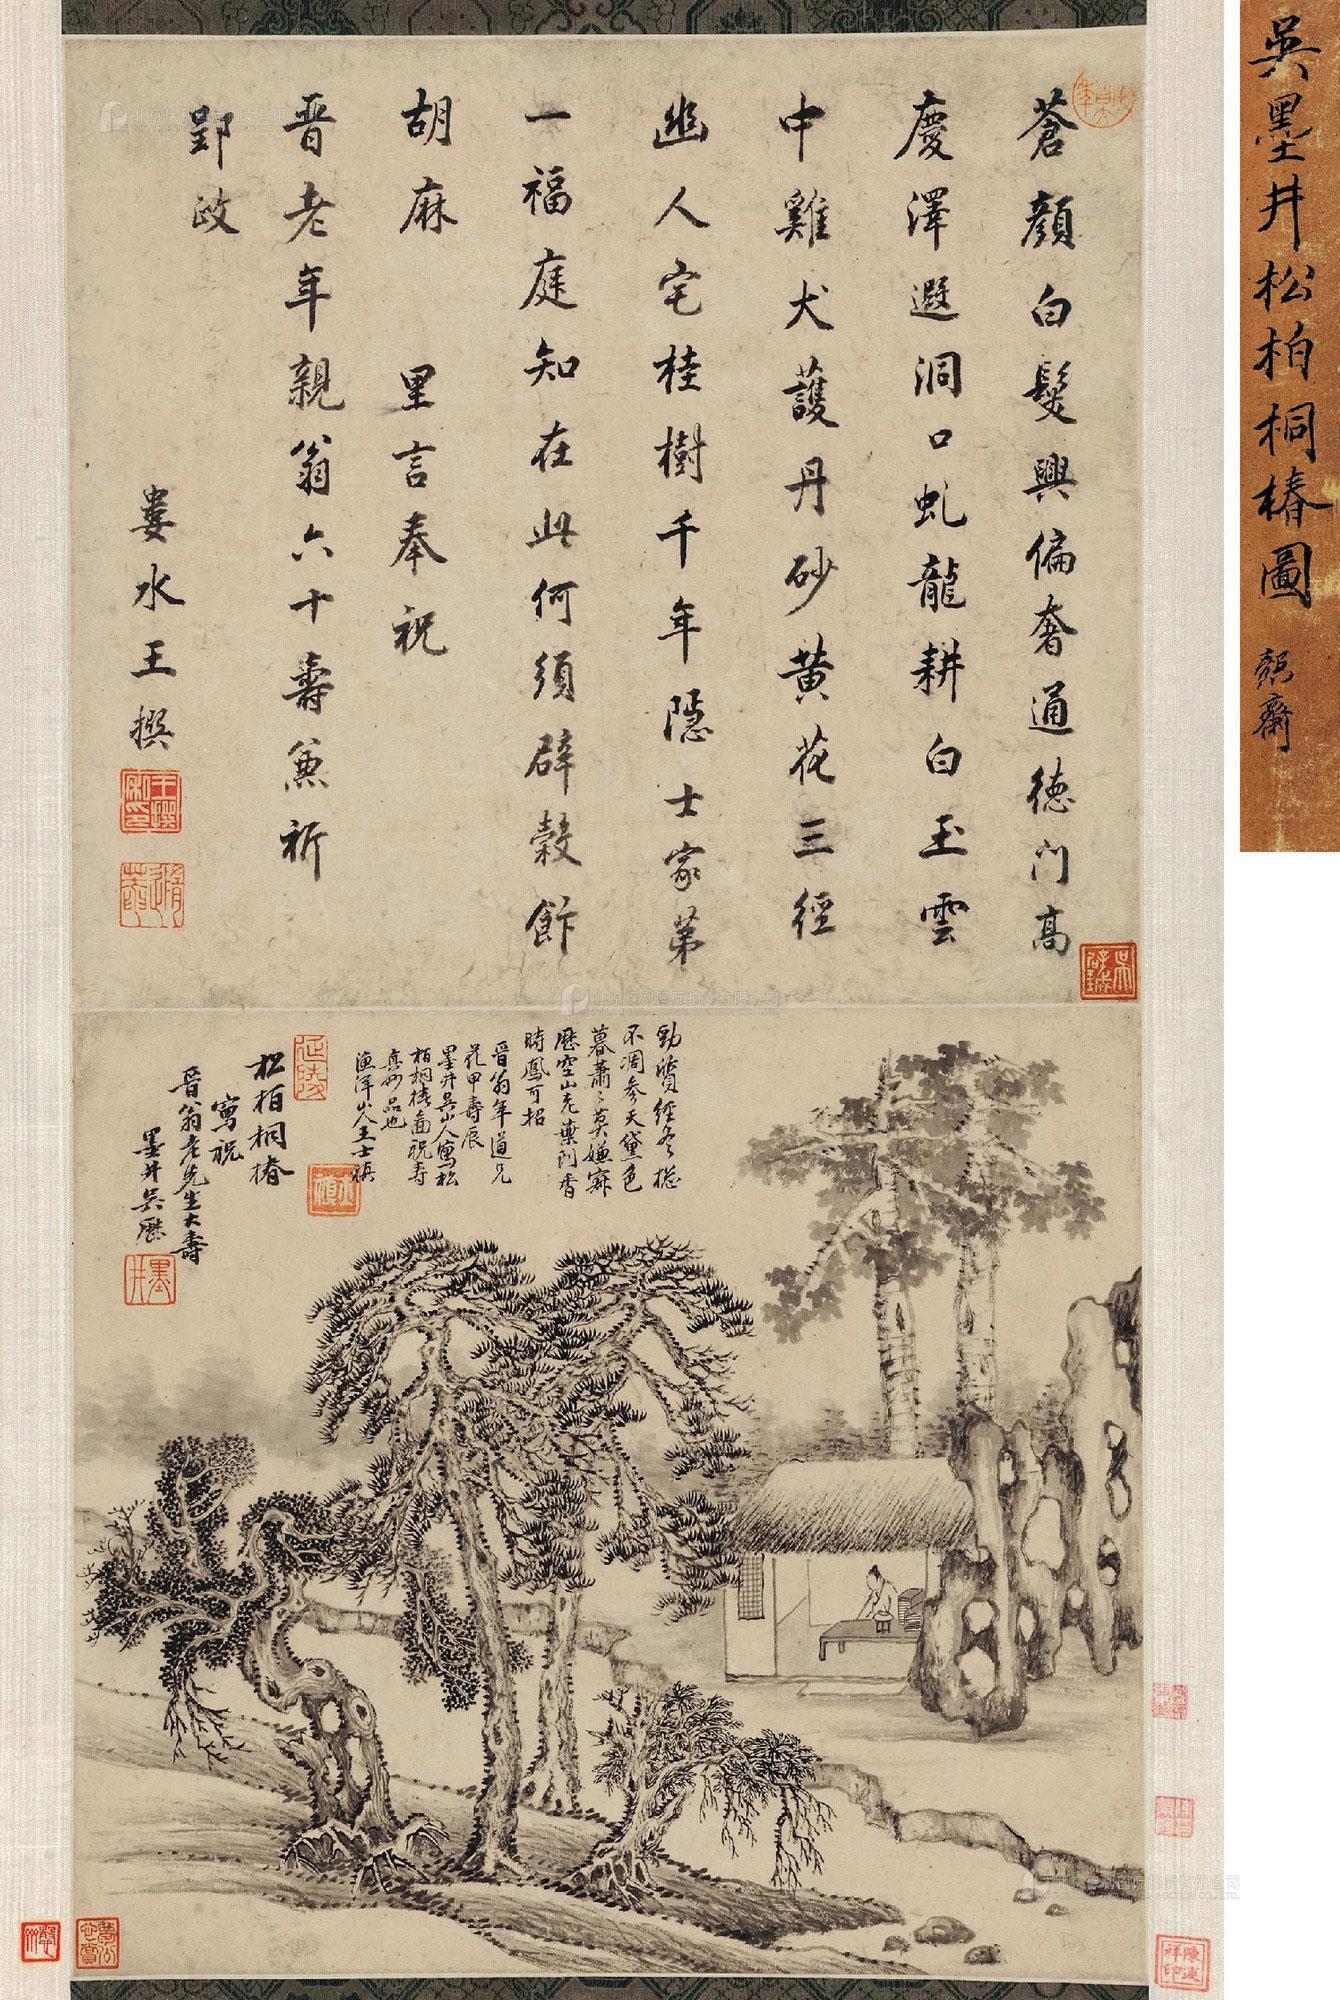 吳墨井松柏桐椿圖
蒼顏白髮興偏奢通德門高
慶澤遐洞口虬龍耕白玉雲
中雞犬護丹砂黃花三徑
幽人宅桂樹千年隱士家第
一福庭知在此何須辟穀飯
胡麻
里言奉祝
晉老年親翁六十壽兼祈
郢政
婁水王撰
勁質經冬摠
不凋參天黛色
暮蕭〻莫嫌寂
歷空山老葉門香
時鳳可招
晉翁年道兄
花甲壽辰
墨井吳山人寫松
柏桐椿圖祝壽
真妙品也
漁洋山人王士禛
松柏桐椿
寫祝
晉翁老先生大壽
墨井吳歷
延陵
墨井
陳連祥印